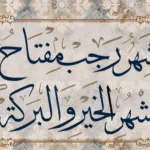 شهر رجب مفتاح
شهر الخير والبركة